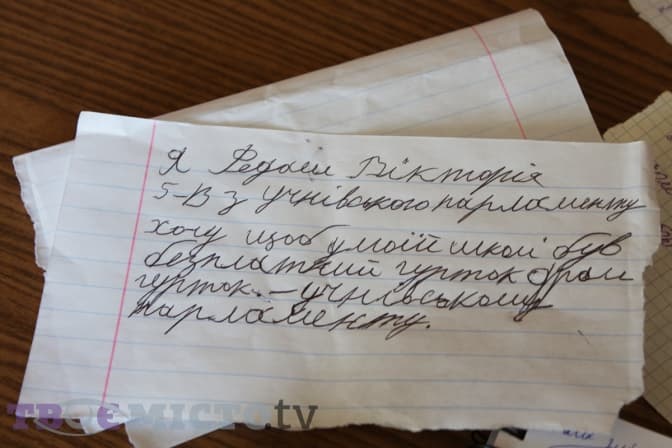 Я Федаш Вікторія
5-В з учнівського парламенту
хочу щоб у моїй школі був
безплатний гурток
гурток. – учнівському
парламенту.
ТВОЄМІСТО.tv